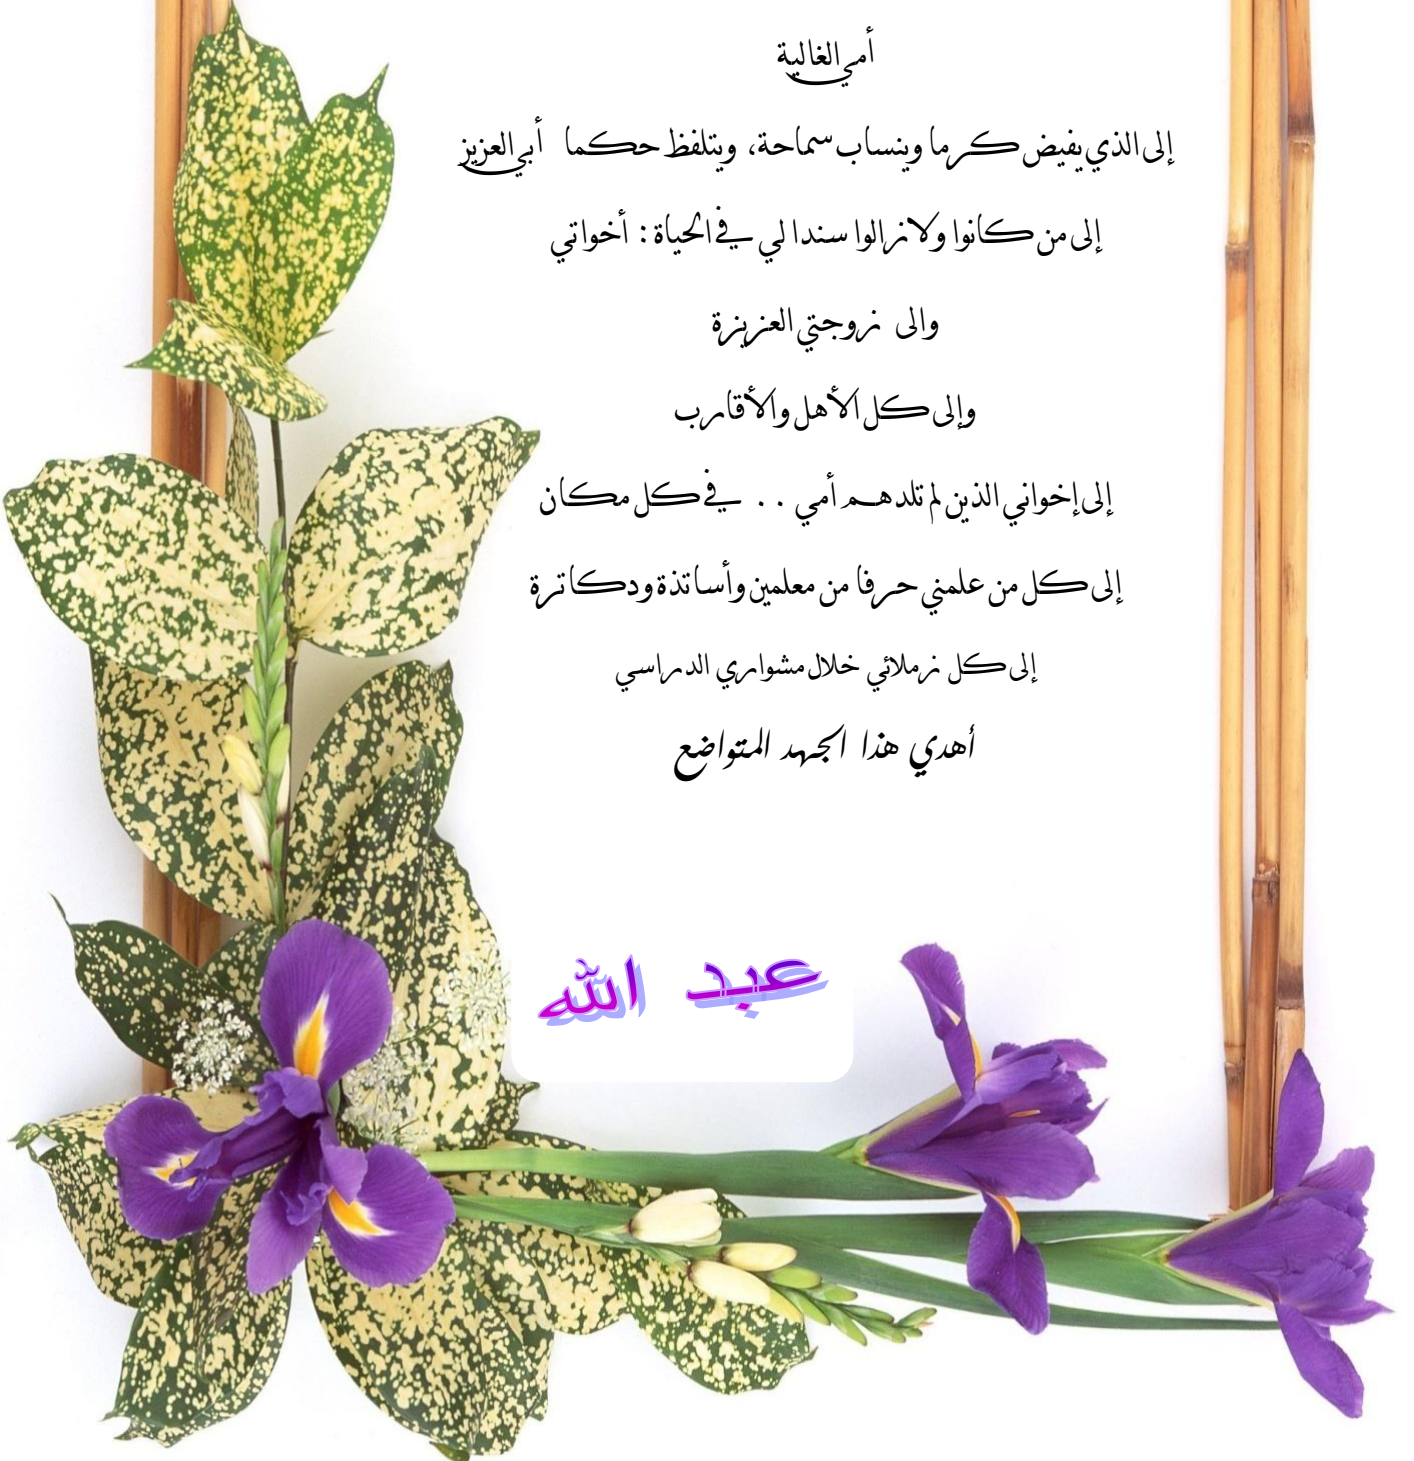 أمي الغالية
إلى الذي يفيض كرما وينساب سماحة، ويتلفظ حكما أبي العزيز
إلى من كانوا ولازالوا سندا لي في الحياة : أخواتي
والى زوجتي العزيزة
وإلى كل الأهل والأقارب
إلى إخواني الذين لم تلدهم أمي . . في كل مكان
إلى كل من علمني حرفا من معلمين وأساتذة ودكاترة
إلى كل زملائي خلال مشواري الدراسي
أهدي هذا الجهد المتواضع
عبد الله